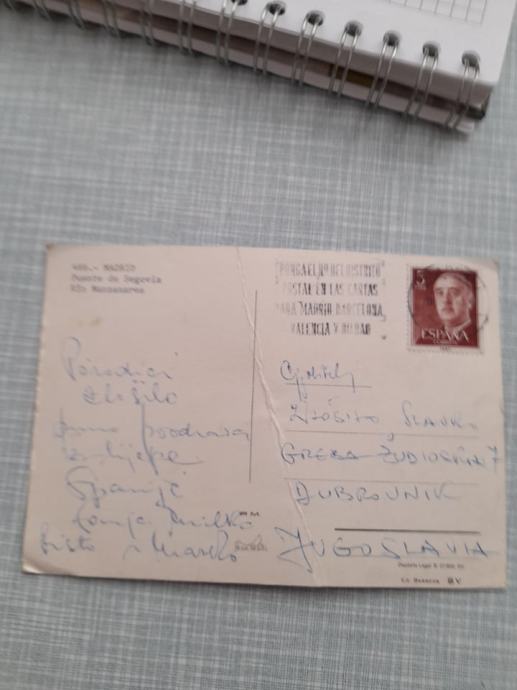 466.- MADRID
Puente de Segovia
Río Manzanares
PONGA EL Nº DEL DISTRITO
POSTAL EN LAS CARTAS
PARA MADRID BARCELONA
VALENCIA Y BILBAO
5
ESPAÑA
Porodici
puno pozdrava
iz lijepe
Španije
i Marko
SLAVKO
GREBA ŽUDIOSKA 7
DUBROVNIK
JUGOSLAVIA